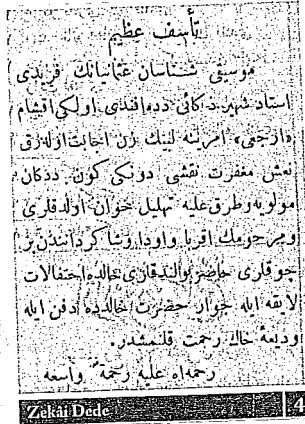 تأسف عظیم
موسیقی شناسان عثمانیانك فریدی
استاد شهیر ذكائی دده افندی اولكی اقشام
«ارجعی» امرینه لبیك زن اجابت اوله‌رق
نعش مغفرت نقشی دونكی كون ددكان
مولویه وطرق علیه تهلیل خوان اولدقلری
ومرحومك اقربا واودا وشاكرداندن بر
چوقلری حاضر بولندقلری حالده احتفالات
لایقه ایله جوار حضرت خالدده دفن ایله
ودیعۀ خاك رحمت قلنمشدر.
رحمه‌اه علیه رحمة واسعه
Zekâi Dede
4